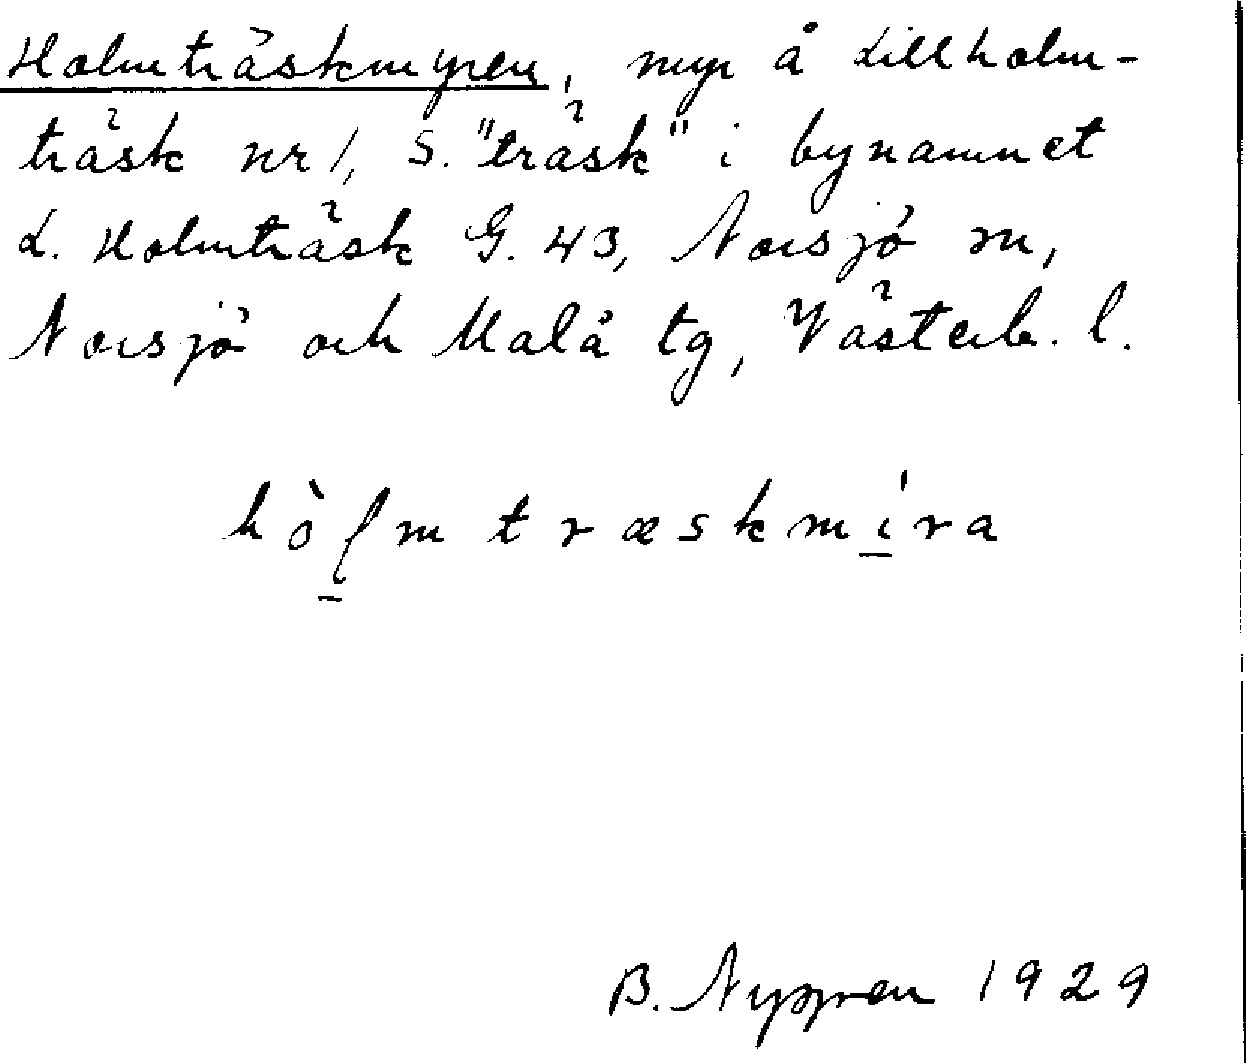 Holmträskmyren, myr å Lillholm-
träsk nr 1, S. "träsk" i bynamnet
L. Holmträsk G. 43, Norsjö sn,
Norsjö och Malå tg, Västerb. l.
hòlmtræskmı́ra
B. Nygren 1929